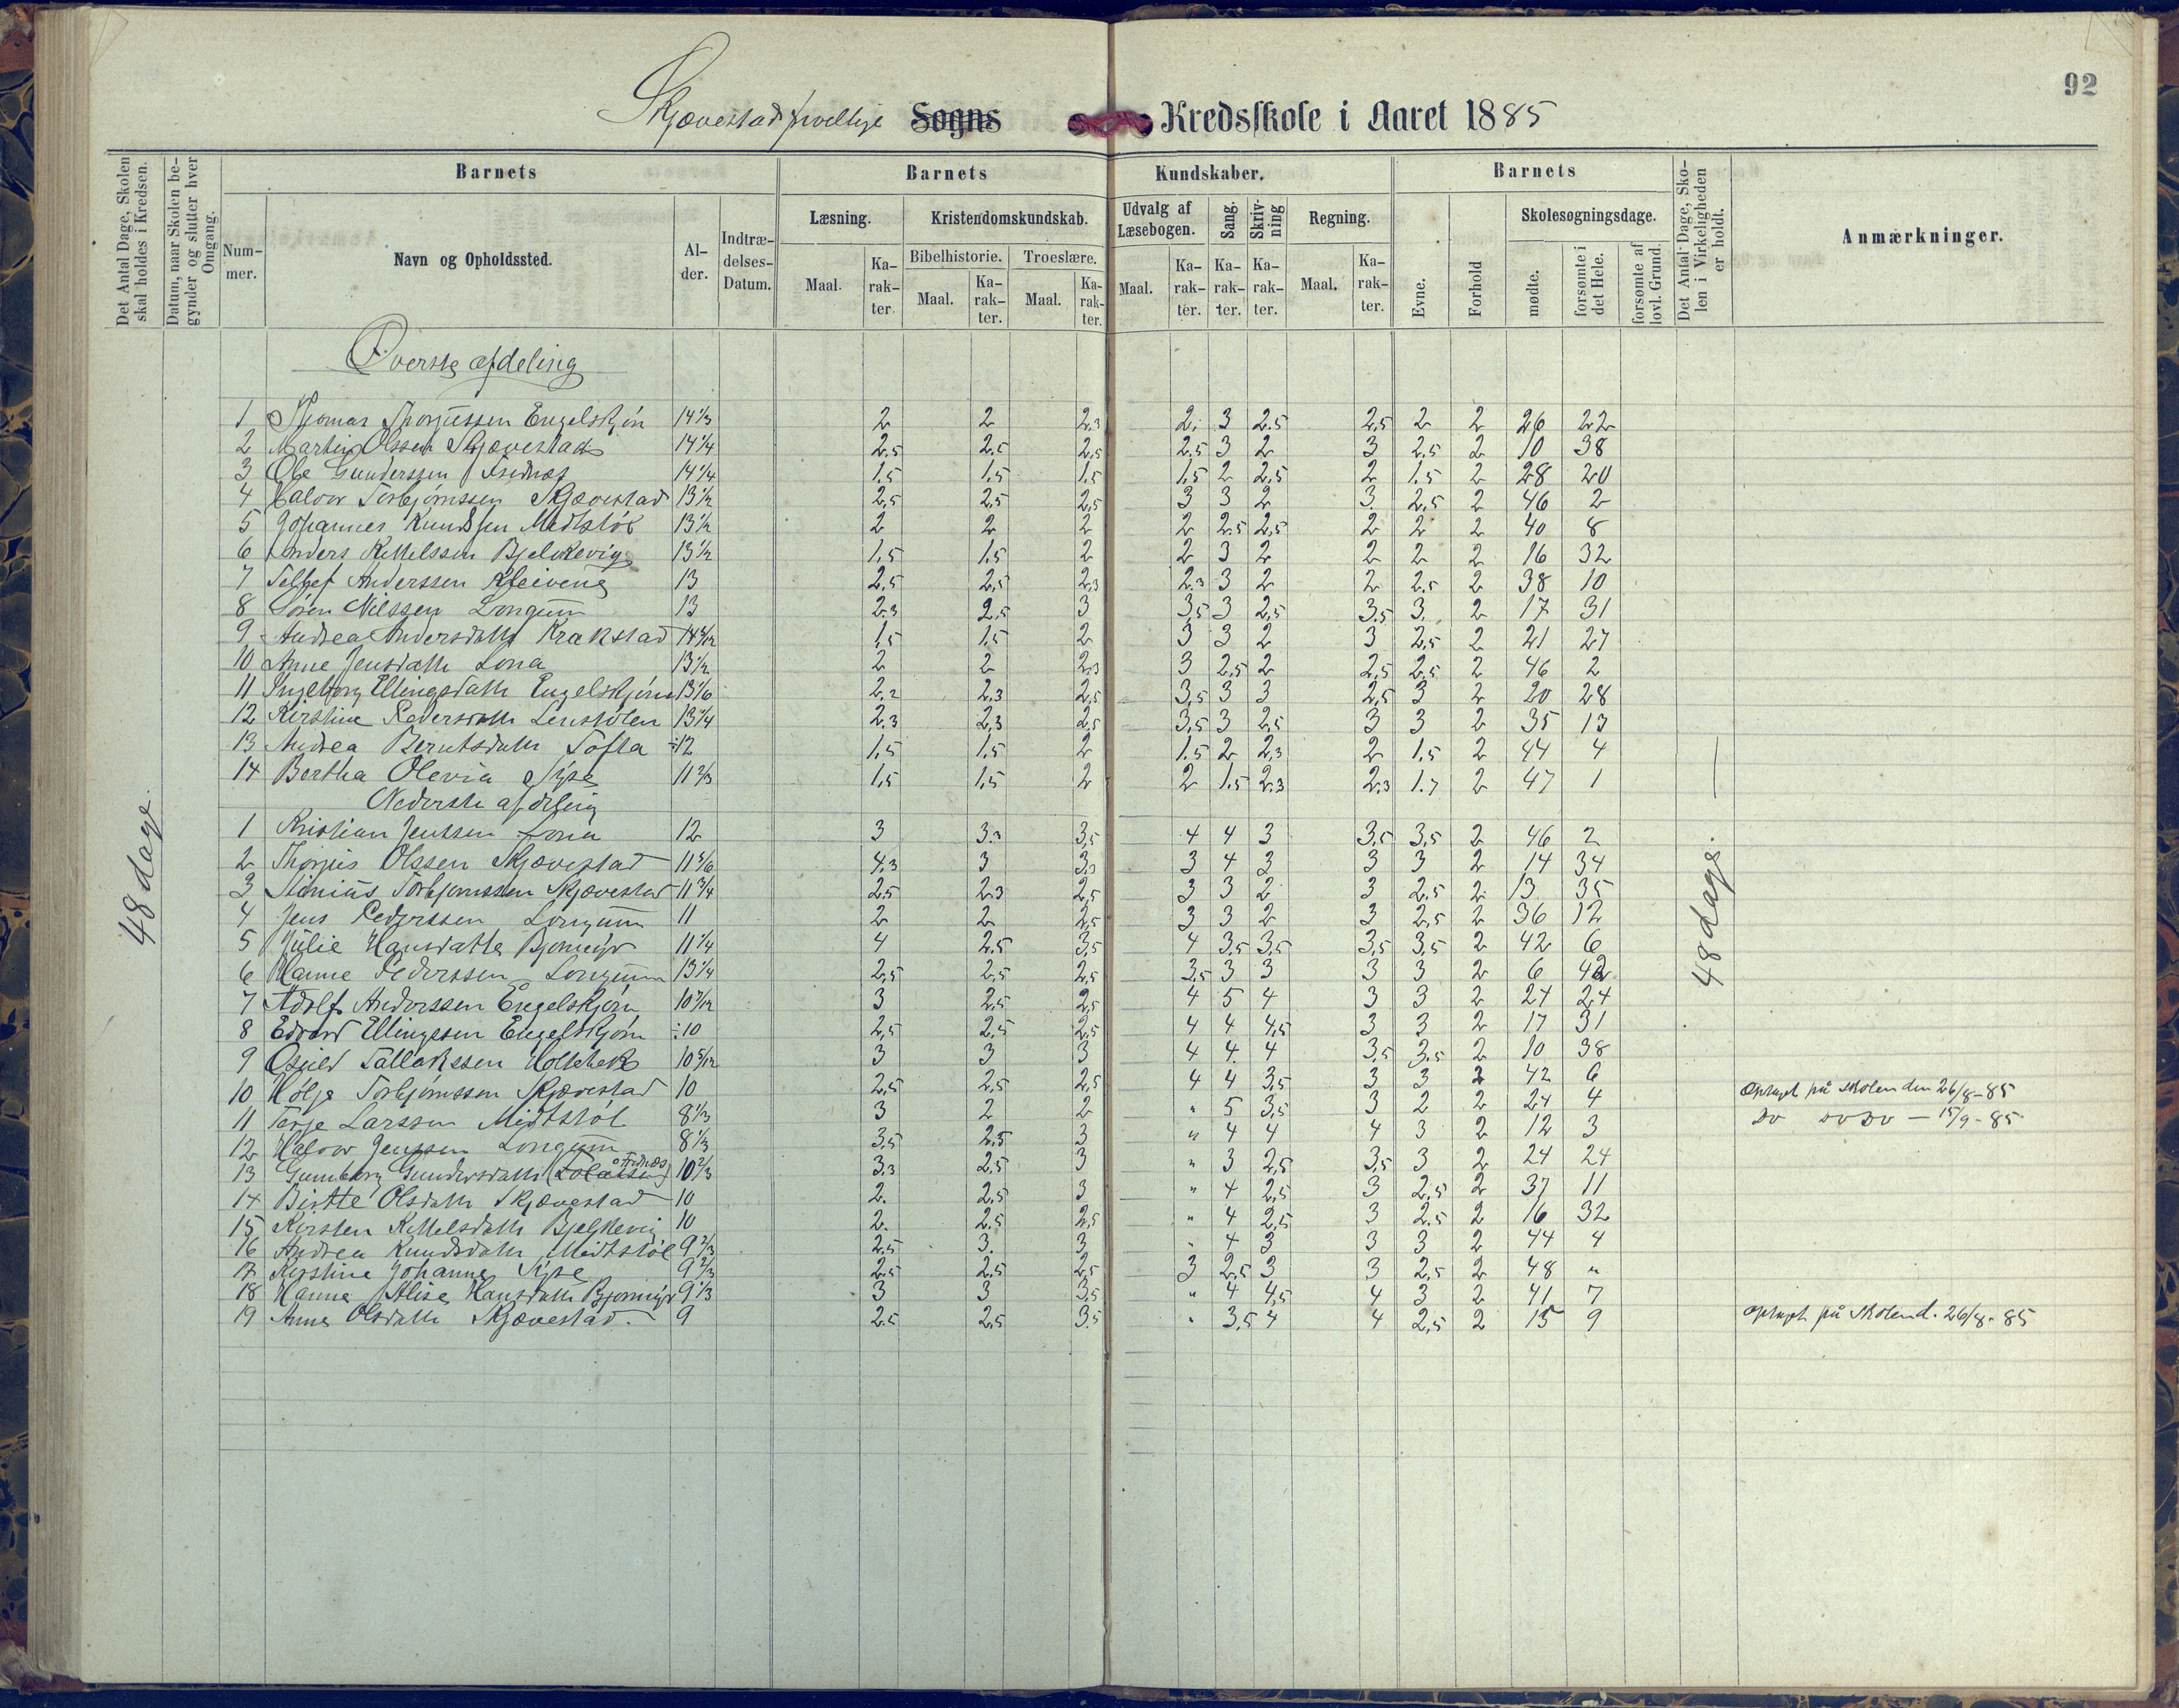 92
Skjævestad frivillige Sogns Kredsskole i Aaret 1885
Det Antal Dage, Skolen skal holdes i Kredsen.
Datum, naar Skolen begynder og slutter hver Omgang.
Barnets Barnets Kundskaber. Barnets
Det Antal Dage, Skolen i Virkeligheden er holdt.
Anmærkninger.
Nummer. Navn og Opholdssted. Alder. Indtrædelses-Datum.
Læsning. Kristendomskundskab. Udvalg af Læsebogen. Sang. Skrivning Regning. Evne. Forhold Skolesøgningsdage.
Bibelhistorie. Troeslære.
Maal. Karakter. Maal. Karakter. Maal. Karakter. Maal. Karakter. Karakter. Karakter. Maal. Karakter. mødte. forsømte i det Hele. forsømte af lovl. Grund.
Øverste afdeling
1 Thomas Thorjussen Engelskjøn 14 1/3 2 2 2.3 2. 3 2.5 2,5 2 2 26 22
2 Martin Olssen Skjævestad 14 1/4 2,5 2,5 2,5 2,5 3 2 3 2,5 2 10 38
3 Ole Gunderssen Frednæs 14 1/4 1,5 1.5 1.5 1,5 2 2,5 2 1.5 2 28 20
4 Halvor Torbjørnssen Skjævestad 13 1/2 2,5 2,5 2,5 3 3 2 3. 2,5 2 46 2
5 Johannes Knudssen Midtstøl 13 1/2 2 2 2 2 2.5 2,5 2 2 2 40 8
6 Anders Kittelssen Bjelkevig 13 1/2 1,5 1.5 2 2 3 2 2 2 2 16 32
7 Tellef Anderssen Kleivene 13 2,5 2,5 2,3 2.3 3 2 2 2.5 2 38 10
8 Søren Nilssen Longum 13 2.3 2,5 3 3,5 3 2,5 3.5 3. 2 17 31
9 Andrea Andersdatter Krakstad 1,5 1.5 2 3 3 2 3 2,5 2 21 27
10 Anne Jensdatter Lona 13 1/2 2 2 2.3 3 2,5 2 2,5 2,5 2 46 2
11 Ingeborg Ellingsdatter Engelskjøn 13 1/6 2.2 2.3 2,5 3,5 3 3 2,5 3 2 20 28
12 Kirstine Pedersdatter Lenstølen 13 1/4 2.3 2,3 2,5 3,5 3 2,5 3 3 2 35 13
13 Andrea Berntsdatter Tofta ÷12 1,5 1,5 2 1.5 2 2,3 2 1.5 2 44 4
14 Bertha Olevia Nype 11 2/3 1,5 1,5 2 2 1.5 2.3 2.3 1.7 2 47 1
Nederste afdeling
1 Kristian Jenssen Lona 12 3 3.3 3,5 4 4 3 3,5 3,5 2 46 2
2 Thorjus Olssen Skjævestad 11 5/6 4.3 3 3,3 3 4 3 3 3 2 14 34
3 Torbjørnssen Skjævestad 11 3/4 2.5 2.3 2,5 3 3 2 3 2,5 2. 13 35
4 Jens Pederssen Longum 11 2 2 2,5 3 3 2 3 2,5 2 36 12
5 Julie Hansdatter Bjormyr 11 1/4 4 2.5 3,5 4 3.5 3,5 3,5 3,5 2 42 6
6 Hanne Pederssen Longum 13 1/4 2,5 2,5 2,5 3,5 3 3 3 3 2 6 42
7 Adolf Anderssen Engelskjøn 10 7/12 3 2.5 2,5 4 5 4 3 3 2 24 24
8 Edvard Ellingssen Engelskjøn ÷10 2,5 2,5 2,5 4 4 4,5 3 3 2 17 31
9 Osuld Tallakssen Holtebek 10 5/12 3 3 3 4 4 4 3,5 3.5 2 10 38
10 Hølje Torbjørnssen Skjævestad 10 2,5 2,5 2,5 4 4 3,5 3 3 2 42 6
11 Terje Larssen Midtstøl 8 1/3 3 2 2 " 5 3,5 3 2 2 24 4 Optaget på skolen den 26/8-85
12 Halvor Jenssen Longum 8 1/3 3,5 2,5 3 " 4 4 4 3 2 12 3 Do Do Do — 15/9-85
13 Gunborg Gundersdatter Frednæs 10 2/3 3,3 2,5 3 " 3 2,5 3,5 3 2 24 24
14 Birtte Olsdatter Skjævestad 10 2. 2.5 3 " 4 2,5 3 2,5 2 37 11
15 Kirsten Kittelsdatter Bjelkevig 10 2. 2.5 2,5 " 4 2,5 3 2.5 2 16 32
16 Andrea Knudsdatter Midtstøl 9 2/3 2.5 3. 3 " 4 3 3 3 2 44 4
17 Kirstine Johanne Nype 9 2/3 2.5 2.5 2,5 3 2,5 3 3 2,5 2 48 "
18 Hanne Alise Hansdatter Bjormyr 9 1/3 3 3 3,5 " 4 4,5 4 3 2 41 7
19 Anne Olsdatter Skjævestad. 9 2.5 2,5 3.5 " 3,5 4 4 2,5 2 15 9 Optaget på Skolen d. 26/8-85
48 dage.
48 dage.